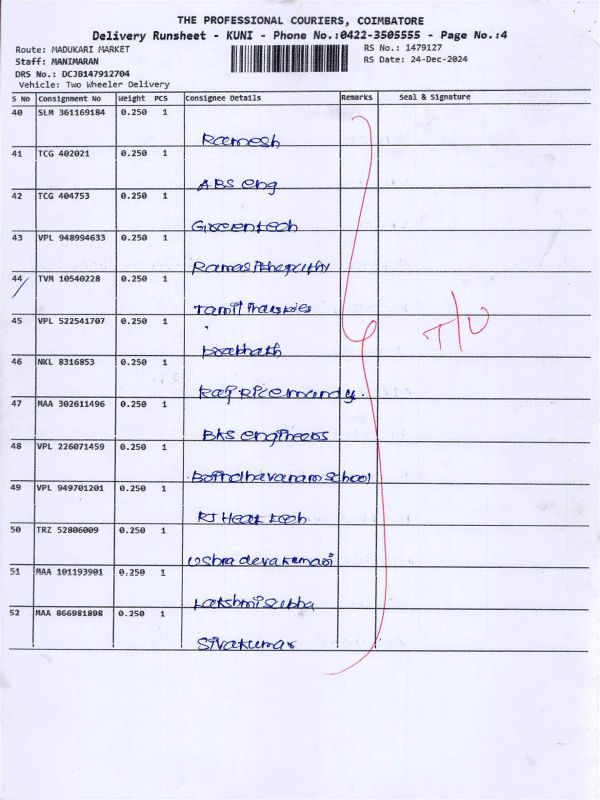 THE PROFESSIONAL COURIERS, COIMBATORE
Delivery Runsheet - KUNI - Phone No.:0422-3505555 - Page No.:4
Route: MADUKARI MARKET
RS No.: 1479127
Staff: MANIMARAN
RS Date: 24-Dec-2024
DRS No.: DCJB147912704
Vehicle: Two Wheeler Delivery
S No Consignment No Weight PCS Consignee Details Remarks Seal & Signature
40 SLM 361169184 0.250 1
Ramesh
41 TCG 402021 0.250 1
ABS eng
42 TCG 404753 0.250 1
Greentech
43 VPL 948994633 0.250 1
44 TVM 10540228 0.250 1
Tamil
45 VPL 522541707 0.250 1
Prabhath
46 NKL 8316853 0.250 1
Raj Rice mandy.
47 MAA 302611496 0.250 1
BKS engineers
48 VPL 226071459 0.250 1
School
49 VPL 949701201 0.250 1
RJ Heat tech
50 TRZ 52806009 0.250 1
Ushra devakumari
51 MAA 101193901 0.250 1
Lakshmi subha
52 MAA 866981898 0.250 1
Sivakumar
T/U